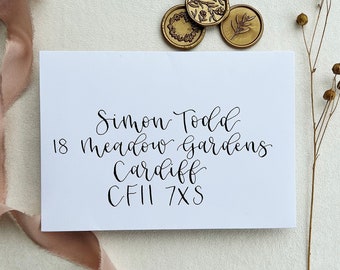 Simon Todd
18 Meadow Gardens
Cardiff
CF11 7XS